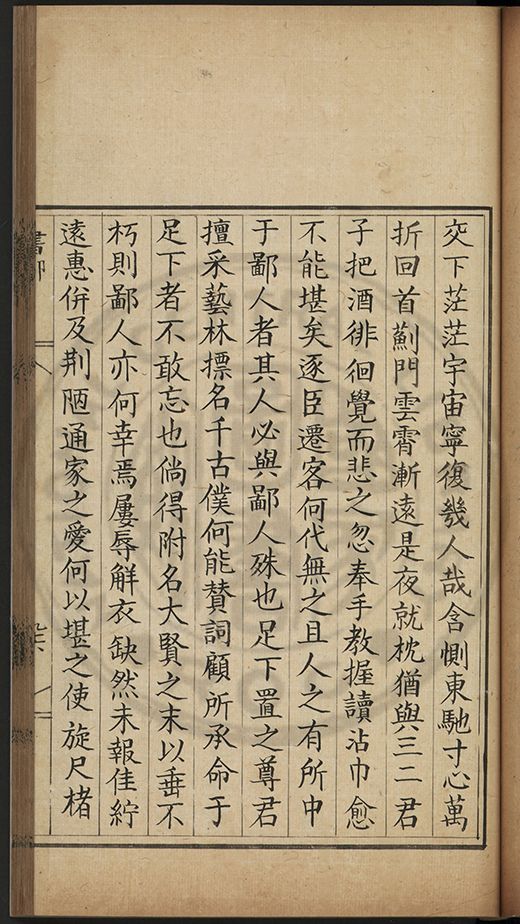 交下茫茫宇宙寧復幾人哉含惻東馳寸心萬
折回首薊門雲霄漸遠是夜就枕猶與三二君
子把酒徘徊覺而悲之忽奉手教握讀沾巾愈
不能堪矣逐臣遷客何代無之且人之有所中
于鄙人者其人必與鄙人殊也足下置之尊君
擅采藝林摽名千古僕何能賛詞顧所承命于
足下者不敢忘也倘得附名大賢之末以垂不
朽則鄙人亦何幸焉屢辱解衣缺然未報佳紵
遠惠併及荆陋通家之愛何以堪之使旋尺楮